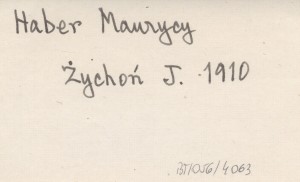 Haber Maurycy
Żychoń J. 1910
BT/056/4063